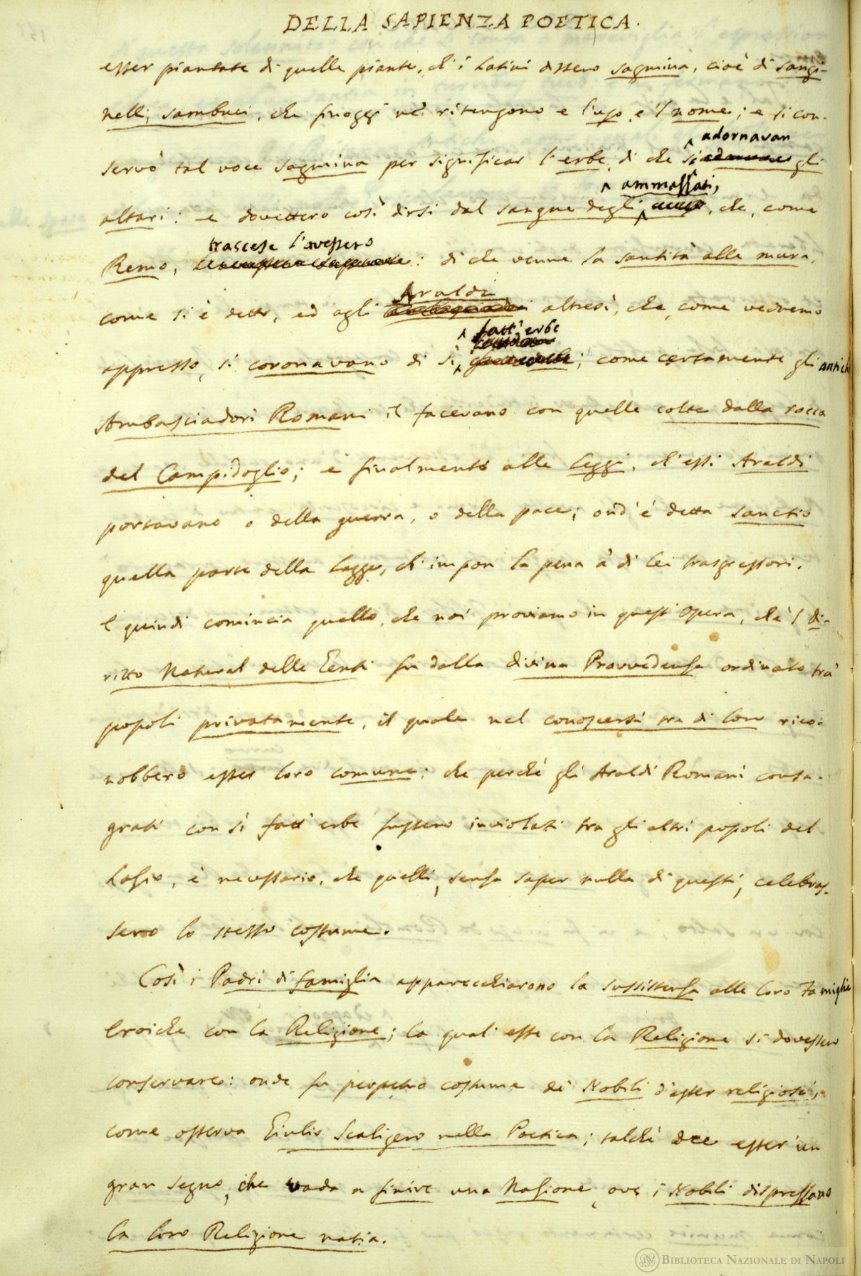 DELLA SAPIENZA POETICA.
esser piantate di quelle piante, ch'i Latini dissero sagmina, cioè di sangi-
nelli, sambuci, che finoggi ne ritengono e l'uso, e 'l nome; e si con-
servò tal voce sagmina per significar l'erbe, di che si adornavan gli
altari: e dovettero così dirsi dal sangue degli ammazzati, che, come
Remo, trascese l'avessero: di che venne la santità alle mura,
come si è detto, ed agli Araldi altresì, che, come vedremo
appresso, si coronavano di sì fatt' erbe; come certamente gli antichi
Ambasciadori Romani il facevano con quelle colte dalla rocca
del Campidoglio; e finalmente alle Leggi, ch'essi Araldi
portavano o della guerra, o della pace; ond'è detta sanctio
quella parte della Legge, ch'impon la pena a' di lei trasgressori.
E quindi comincia quello, che noi proviamo in quest'Opera, che 'l di-
ritto Natural delle Genti fu dalla divina Provvedenza ordinato tra'
popoli privatamente, il quale nel conoscersi tra di loro rico-
nobbero esser loro comune: che perchè gli Araldi Romani consa-
grati con sì fatt' erbe fussero inviolati tra gli altri popoli del
Lazio, è necessario, che quelli, senza saper nulla di questi, celebras-
sero lo stesso costume.
Così i Padri di famiglia apparecchiarono la sussistenza alle loro Famiglie
Eroiche con la Religione; la qual' esse con la Religione si dovessero
conservare: onde fu perpetuo costume de' Nobili d'esser religiosi,
come osserva Giulio Scaligero nella Poetica; talchè dee esser' un
gran segno, che vada a finire una Nazione, ove i Nobili disprezzano
la loro Religione natia.
BIBLIOTECA NAZIONALE DI NAPOLI